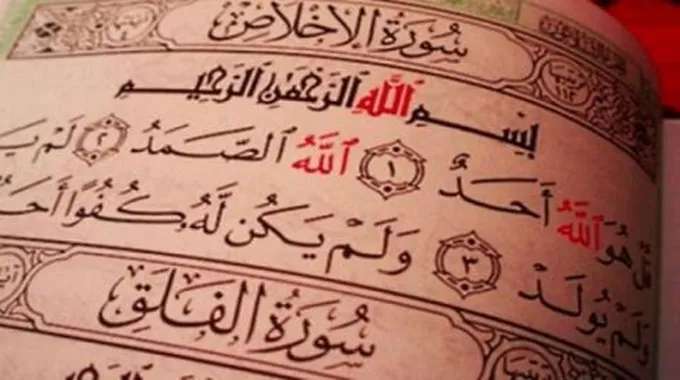 سُورَةُ الإِخْلَاصِ
بِسْمِ ٱللَّهِ ٱلرَّحْمَٰنِ ٱلرَّحِيمِ
قُلْ هُوَ ٱللَّهُ أَحَدٌ ١ ٱللَّهُ ٱلصَّمَدُ ٢ لَمْ يَـ
وَلَمْ يُولَدْ ٣ وَلَمْ يَكُن لَّهُۥ كُفُوًا أَحَـ
سُورَةُ الفَلَقِ